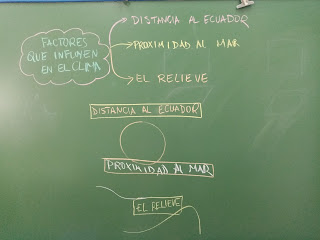 FACTORES
QUE INFLUYEN
EN EL CLIMA
DISTANCIA AL ECUADOR
PROXIMIDAD AL MAR
EL RELIEVE
DISTANCIA AL ECUADOR
PROXIMIDAD AL MAR
EL RELIEVE